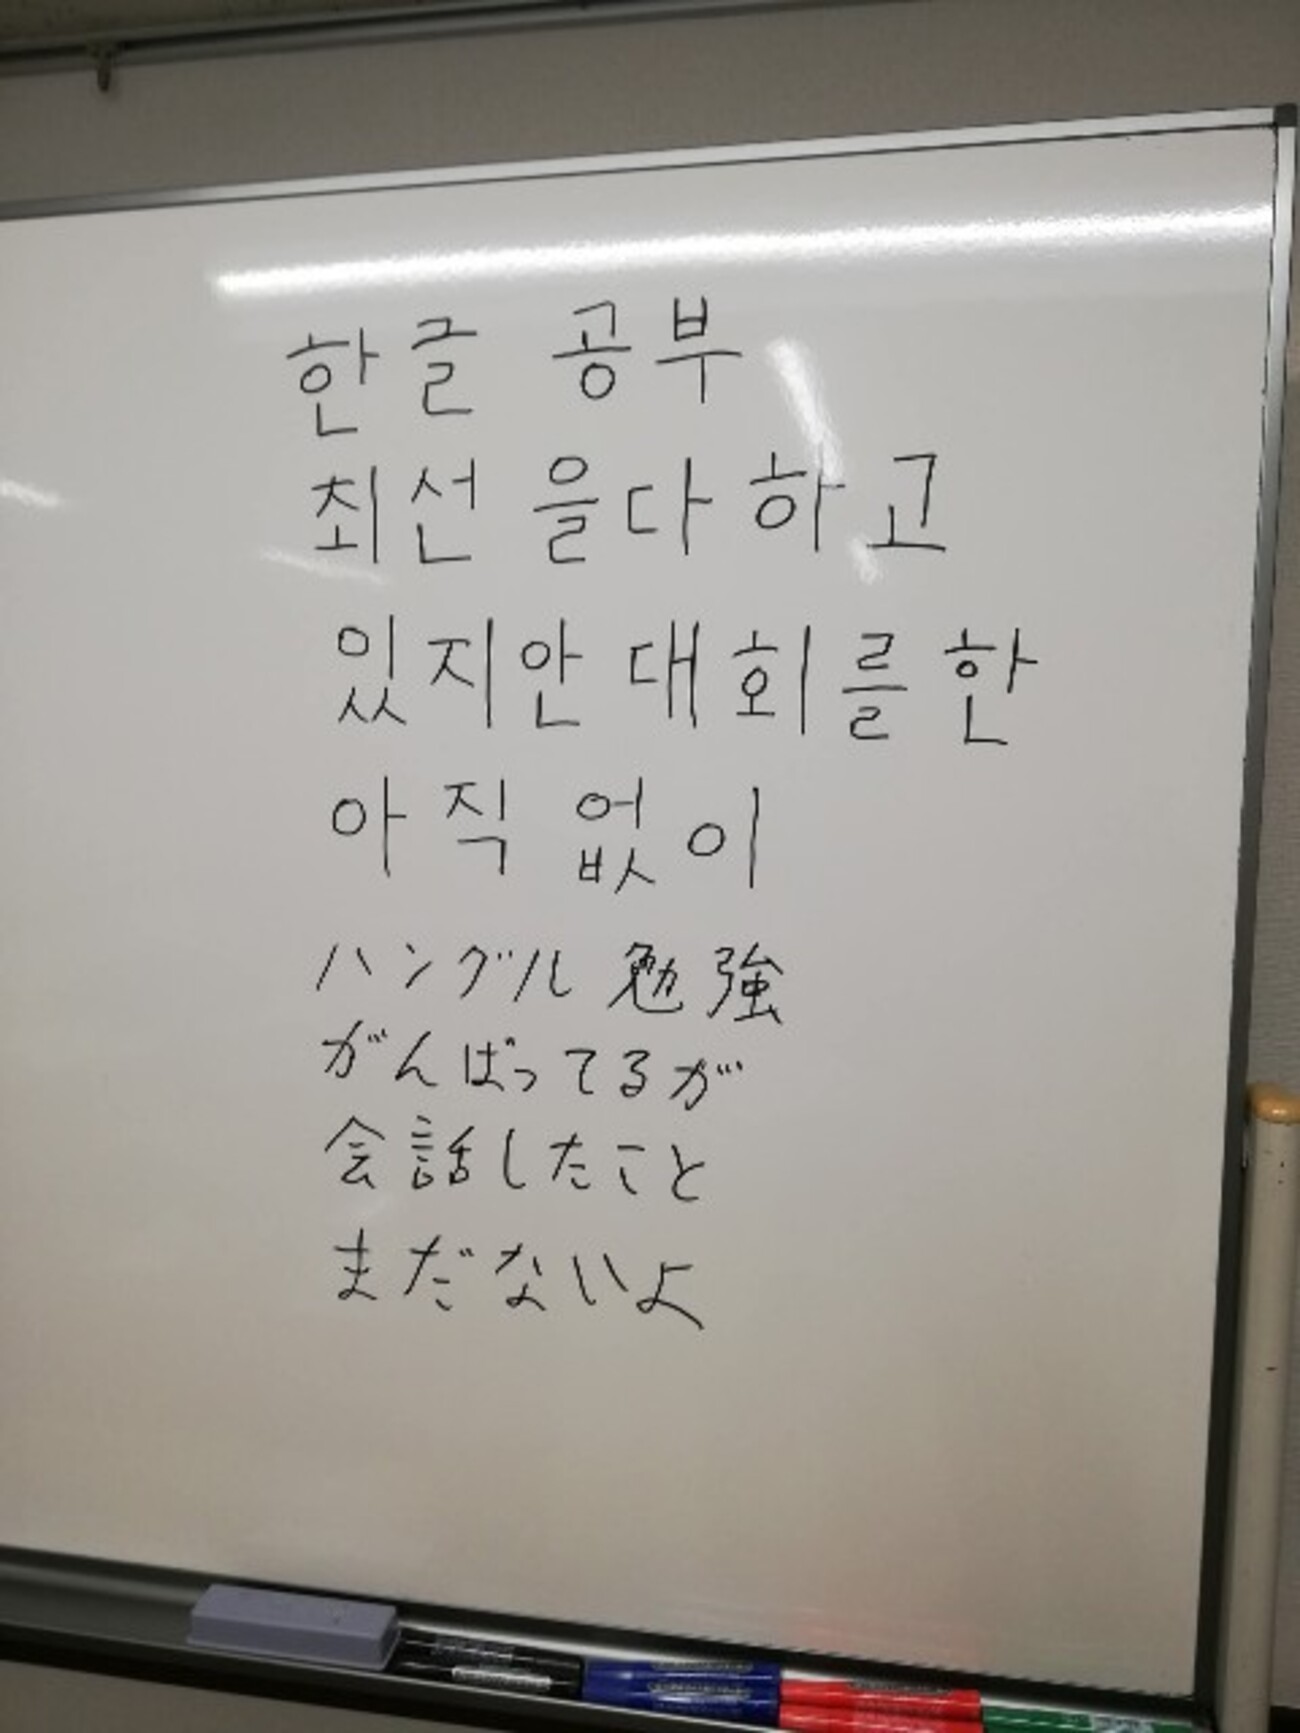 한글 공부
최선 을다하고
있지안 대회를한
아직 없이
ハングル勉強
がんばってるが
会話したこと
まだないよ